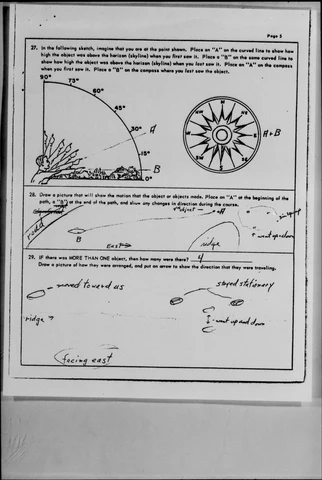 Page 3
27. In the following sketch, imagine that you are at the point shown. Place an "A" on the curved line to show how
high the object was above the horizon (skyline) when you first saw it. Place a "B" on the same curved line to
show how high the object was above the horizon (skyline) when you last saw it. Place an "A" on the compass
when you first saw it. Place a "B" on the compass where you last saw the object.
90°
75°
60°
45°
30°
A
15°
B
0°
N
NE
E
SE
S
SW
W
NW
A+B
28. Draw a picture that will show the motion that the object or objects made. Place an "A" at the beginning of the
path, a "B" at the end of the path, and show any changes in direction during the course.
road
object
A
B
EAST
ridge
went up + down
29. IF there was MORE THAN ONE object, then how many were there? 4
Draw a picture of how they were arranged, and put an arrow to show the direction that they were traveling.
moved toward us
stayed stationery
ridge
went up and down
facing east